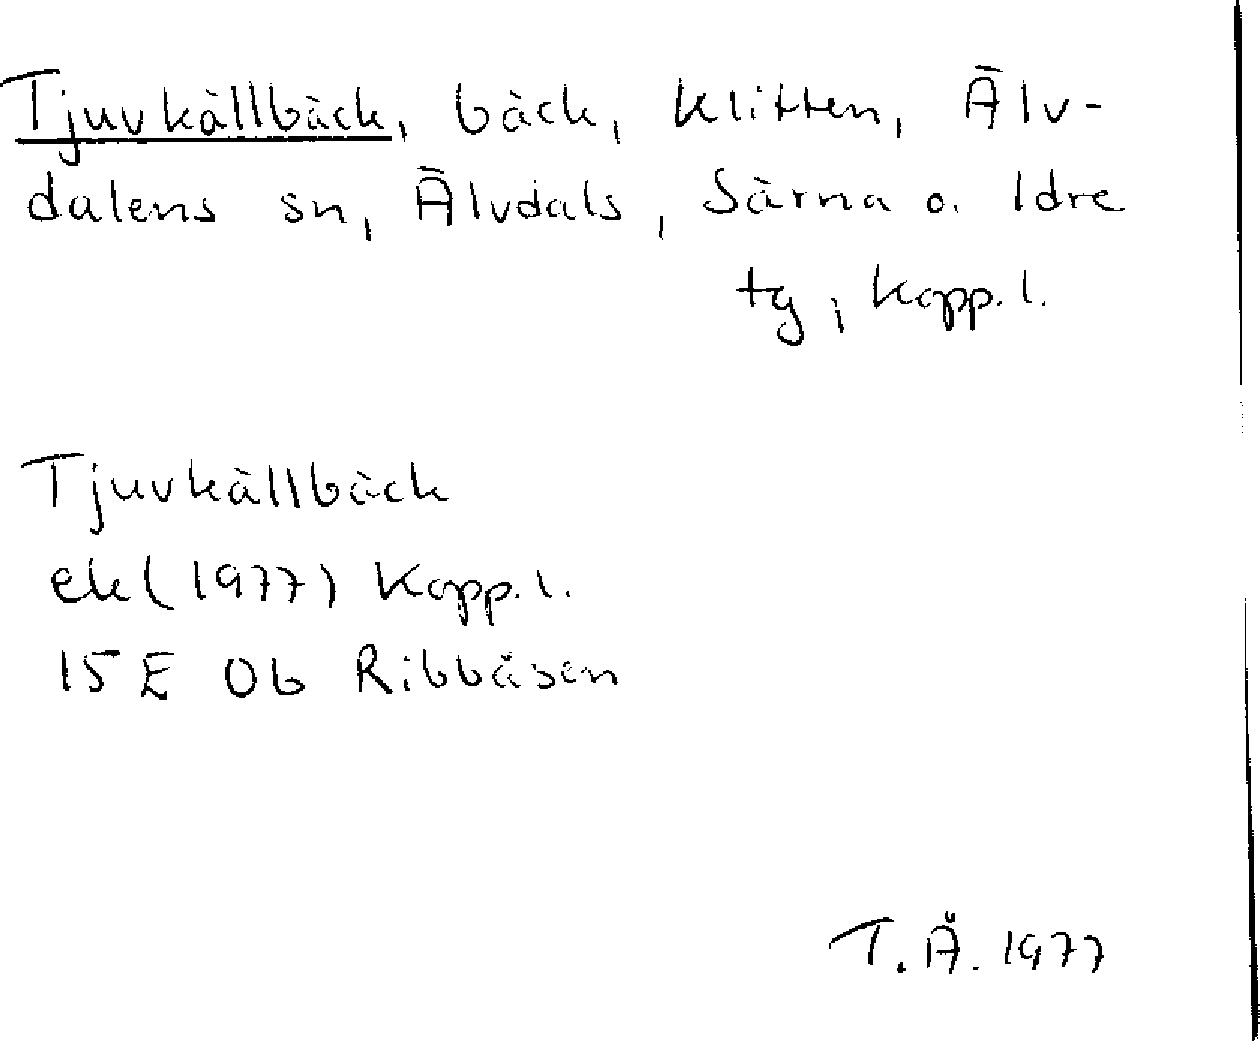 Tjuvkällbäck, bäck, Klitten, Älv-
dalens sn, Älvdals, Särna o. Idre
tg, Kopp.l.
Tjuvkällbäck
ek (1977) Kopp.l.
15 E 0b Ribbåsen
T.Å. 1977